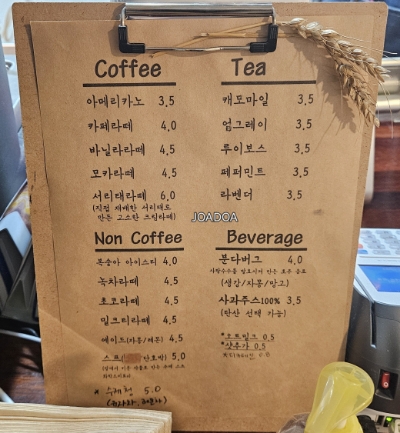 Coffee
아메리카노 3.5
카페라떼 4.0
바닐라라떼 4.5
모카라떼 4.5
서리태라떼 6.0
(직접 재배한 서리태로
만든 고소한 크림라떼)
Tea
캐모마일 3.5
얼그레이 3.5
루이보스 3.5
페퍼민트 3.5
라벤더 3.5
JOADOA
Non Coffee
복숭아 아이스티 4.0
녹차라떼 4.5
초코라떼 4.5
밀크티라떼 4.5
에이드(자몽/레몬) 4.5
단호박) 5.0
* 수제청 5.0
Beverage
분다버그 4.0
(생강/자몽/망고)
사과주스100% 3.5
(탄산 선택 가능)
*오트밀크 0.5
*샷추가 0.5